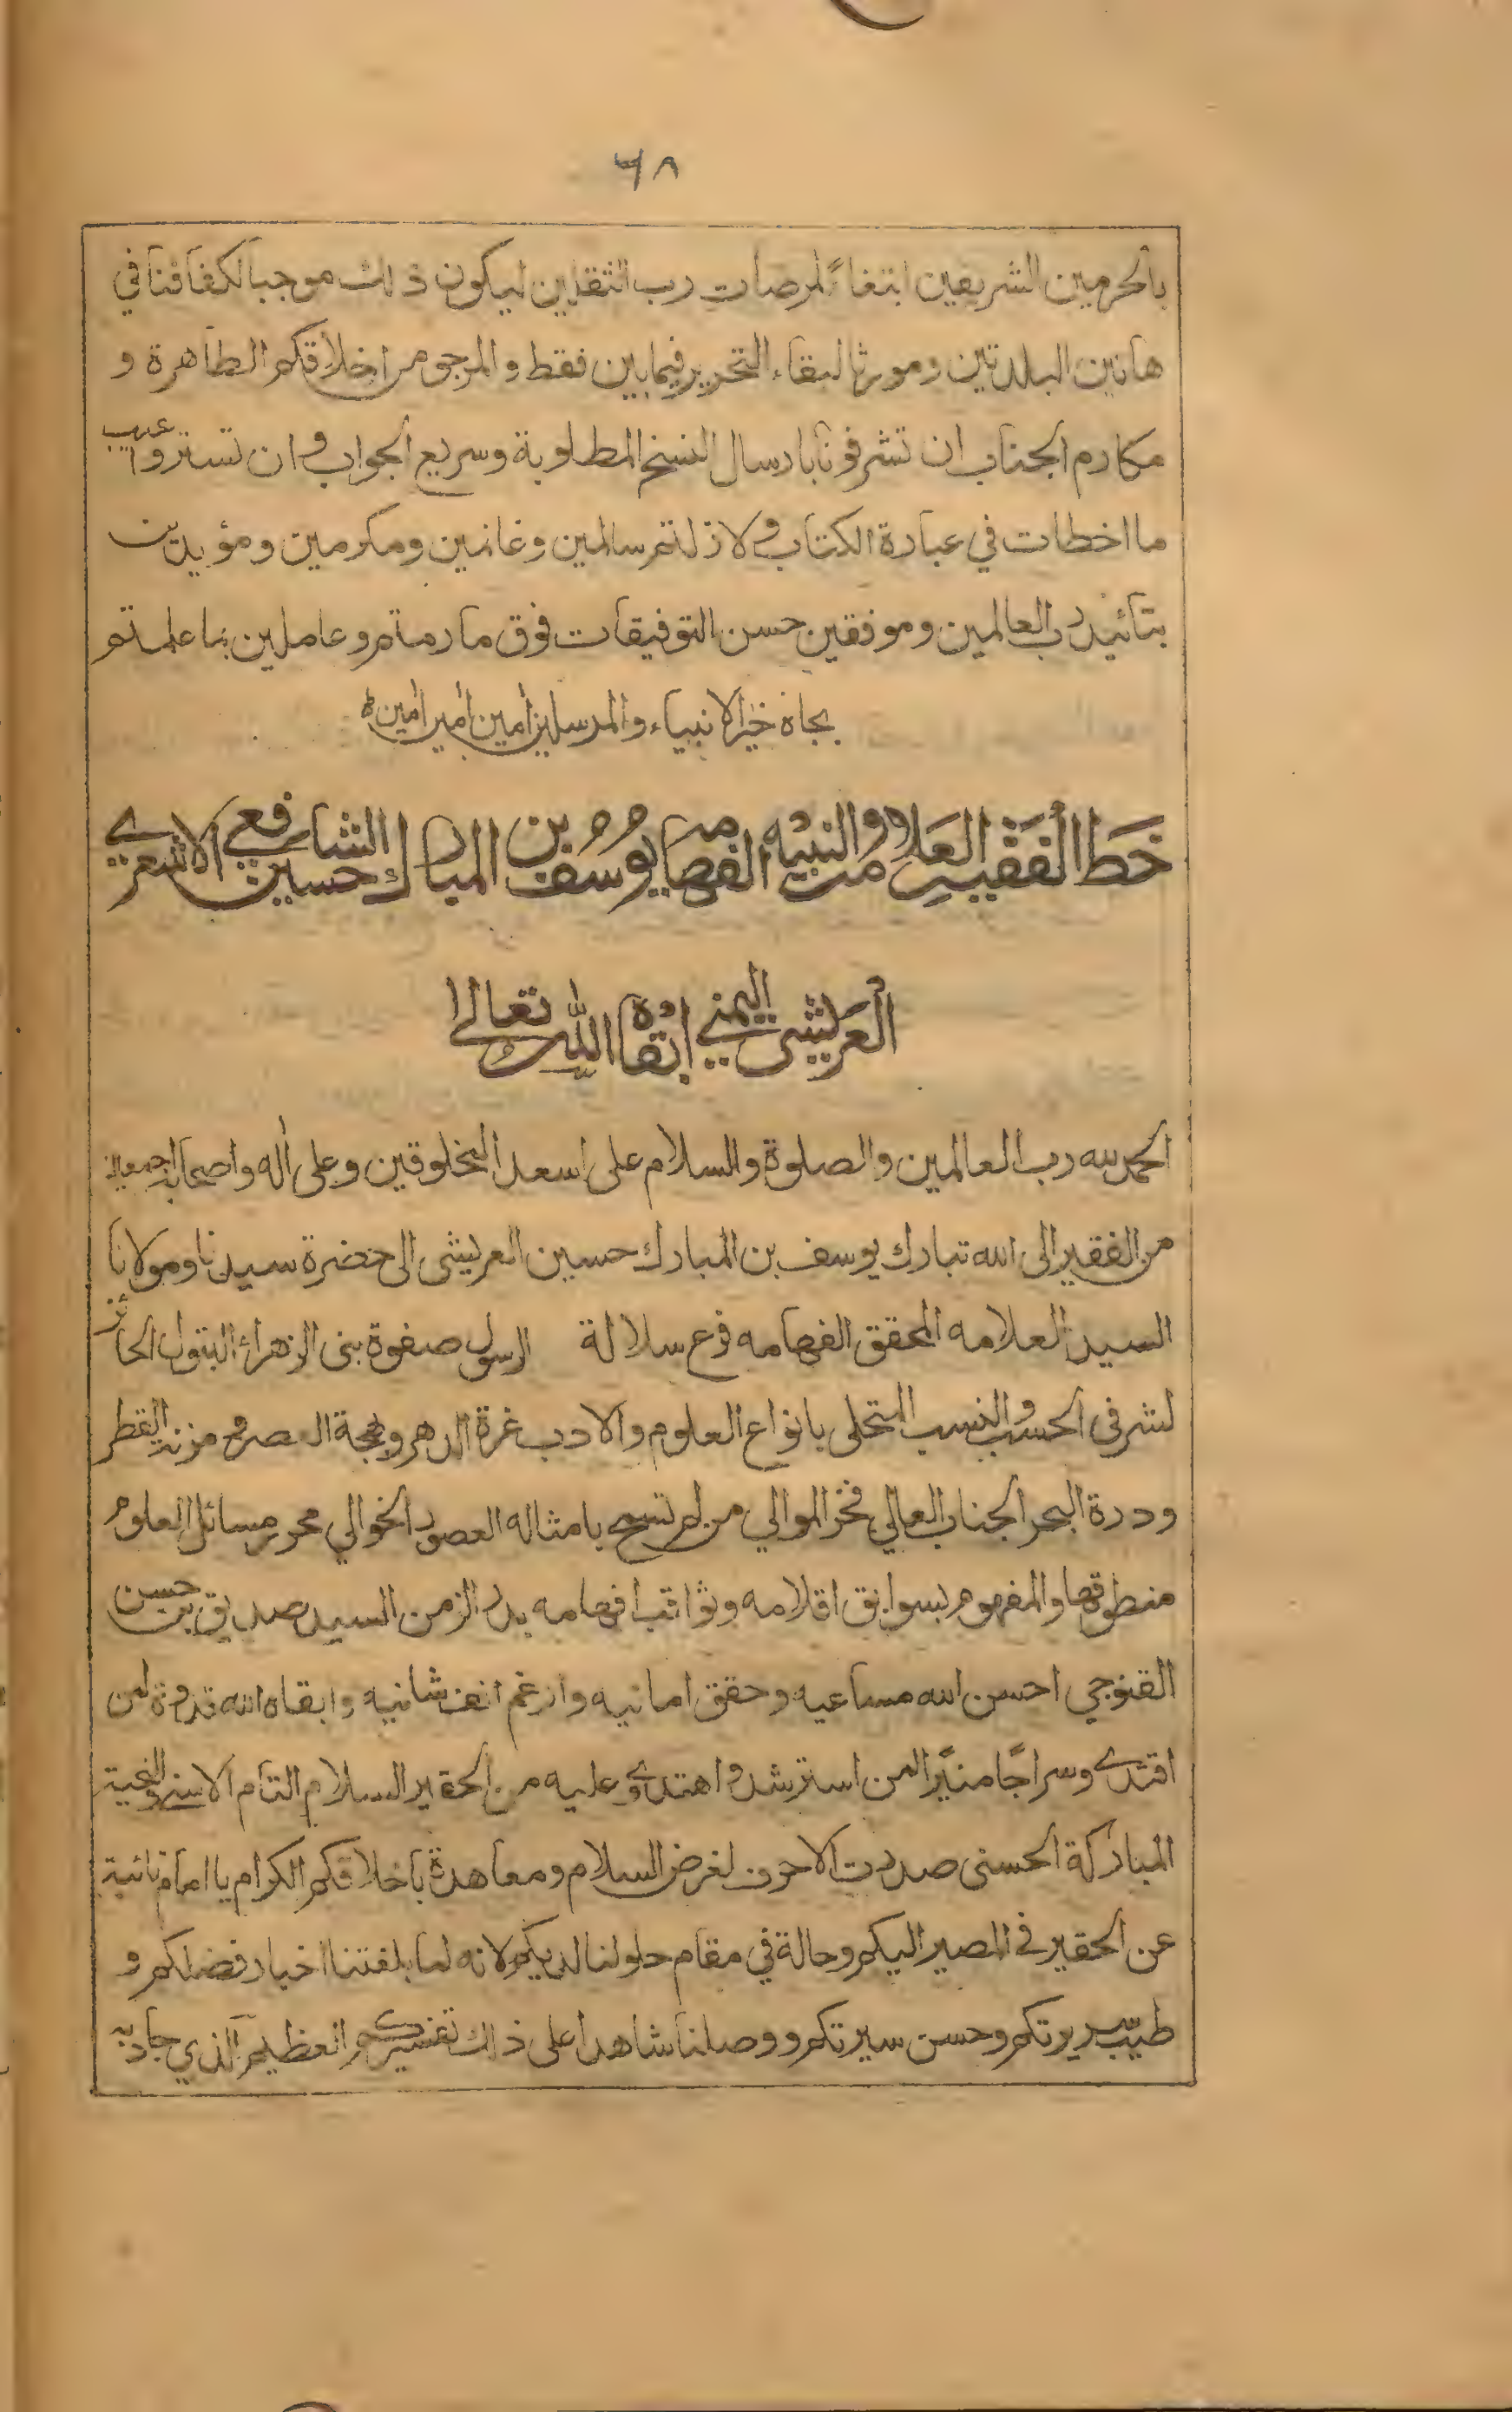 ٦٨
بالحرمين الشريفين ابتغاءً لمرضات رب الثقلين ليكون ذلك موجبا لكفافنا في
هاتين البلدتين ومورثا لبقاء التحرير فيما بين فقط والمرجو من اخلاقكم الطاهرة و
مكارم الجناب ان تشرفونا بارسال النسخ المطلوبة وسريع الجواب وان تستروا عيب
ما اخطات في عبارة الكتاب ولا زلتم سالمين وغانمين ومكرمين ومؤيدين
بتائيد رب العالمين وموفقين حسن التوفيقات فوق ما رمتم وعاملين بما علمتم
بجاه خير الانبياء والمرسلين امين امين امين
خط الفقيه العلامة والنبيه الفهامة يوسف بن المبارك حسين الشافعي الاشعري
العريشي اليمني ابقاه الله تعالى
الحمد لله رب العالمين والصلوة والسلام على اسعد المخلوقين وعلى اله واصحابه اجمعين
من الفقير الى الله تبارك يوسف بن المبارك حسين العريشى الى حضرة سيدنا ومولانا
السيد العلامه المحقق الفهامه فرع سلالة الرسول صفوة بنى الزهراء البتول الحائز
لشرفى الحسب والنسب المتحلى بانواع العلوم والادب غرة الدهر وبهجة العصر ومزنة القطر
ودرة البحر الجناب العالي فخر الموالي من لم تسمح بامثاله العصور الخوالي محرر مسائل العلوم
منطوقها والمفهوم بسوابق اقلامه وثواقب افهامه بدر الزمن السيد صديق بن حسن
القنوجي احسن الله مساعيه وحقق امانيه وارغم انف شانيه وابقاه الله قدوة لمن
اقتدى وسراجًا منيرًا لمن استرشد واهتدى وعليه من الحقير السلام التام الاسنى والتحية
المباركة الحسنى صدرت الاحرف لغرض السلام ومعاهدة باخلاقكم الكرام يا امام نائبة
عن الحقير في المصير اليكم وحالة في مقام حلولنا لديكم لانه لما بلغتنا اخبار فضلكم و
طيب سريرتكم وحسن سيرتكم ووصلنا شاهدا على ذلك تفسيركم العظيم الذي جاد به